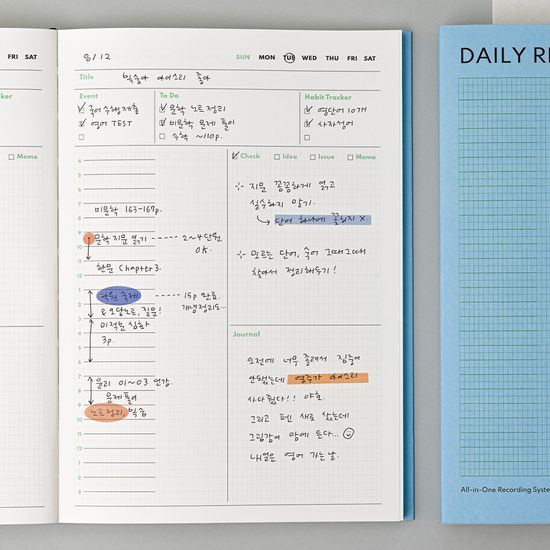 FRI SAT
cker
Memo
8/12
SUN MON TUE WED THU FRI SAT
Title
아이스티 좋아
Event
국어 수행 제출
영어 TEST
To Do
문학 노트 정리
비문학 문제 풀이
수학 ~110p.
Habit Tracker
영단어 10개
사자성어
Check Idea Issue Memo
4
5
6
7
비문학 163-167p.
8
9
문학 지문 읽기 2~4 단원
10
OK.
11
한문 Chapter 3.
12
1
학원 숙제 15p 완료.
2
& 오답노트, 질문!
개념정리도...
3
미적분 심화
4
3p.
5
6
7
윤리 01~03 인강
8
문제 풀이
9
노트정리, 복습
10
11
12
1
2
3
지문 꼼꼼하게 읽고
실수하지 않기.
단어 하나에 꽂히지 X
모르는 단어, 숙어 그때그때
찾아서 정리해두기!
Journal
오전에 너무 졸려서 집중이
안됐는데 영주가 아이스티
사다줬다!! 야호.
그리고 펜 새로 샀는데
그립감이 맘에 든다...
내일은 영어 가는 날.
DAILY RE
All-in-One Recording System